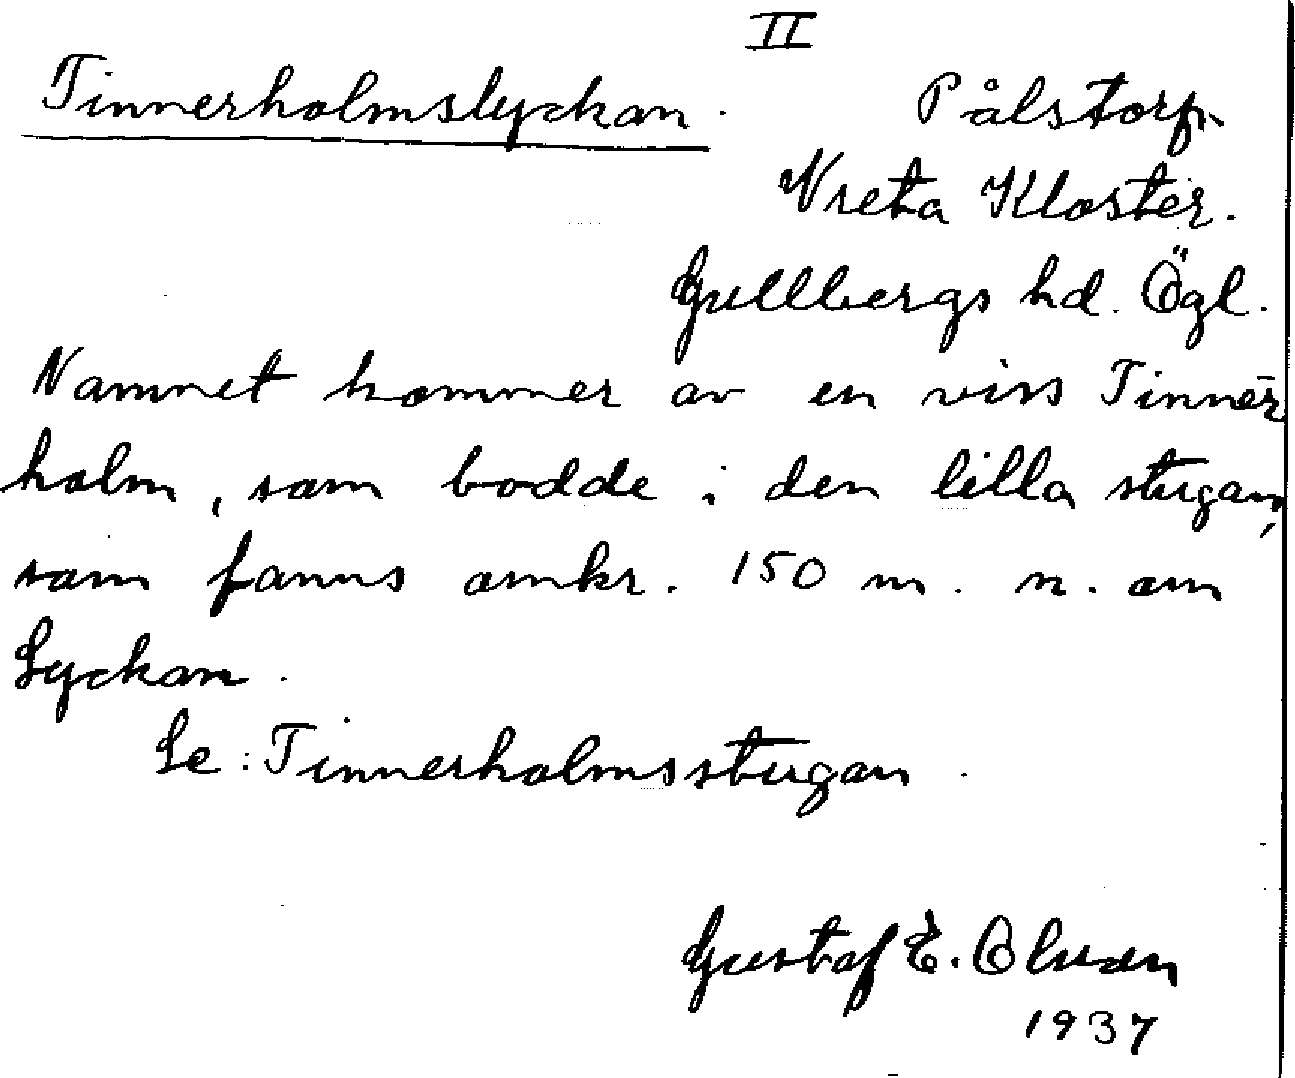 II
Tinnerholmslyckan. Pålstorp.
Vreta Kloster.
Gullbergs hd. Ögl.
Namnet kommer av en viss Tinner
holm, som bodde i den lilla stugan,
som fanns omkr. 150 m. n. om
Lyckan.
Se: Tinnerholmsstugan.
Gustaf E. Olsson
1937